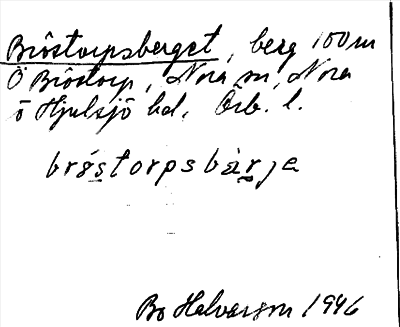 Bröstorpsberget, berg 100 m
Ö Bröstorp, Nora sn, Nora
o Hjulsjö hd, Örb. l.
brö́storpsbàrja
Bo Halvarson 1946